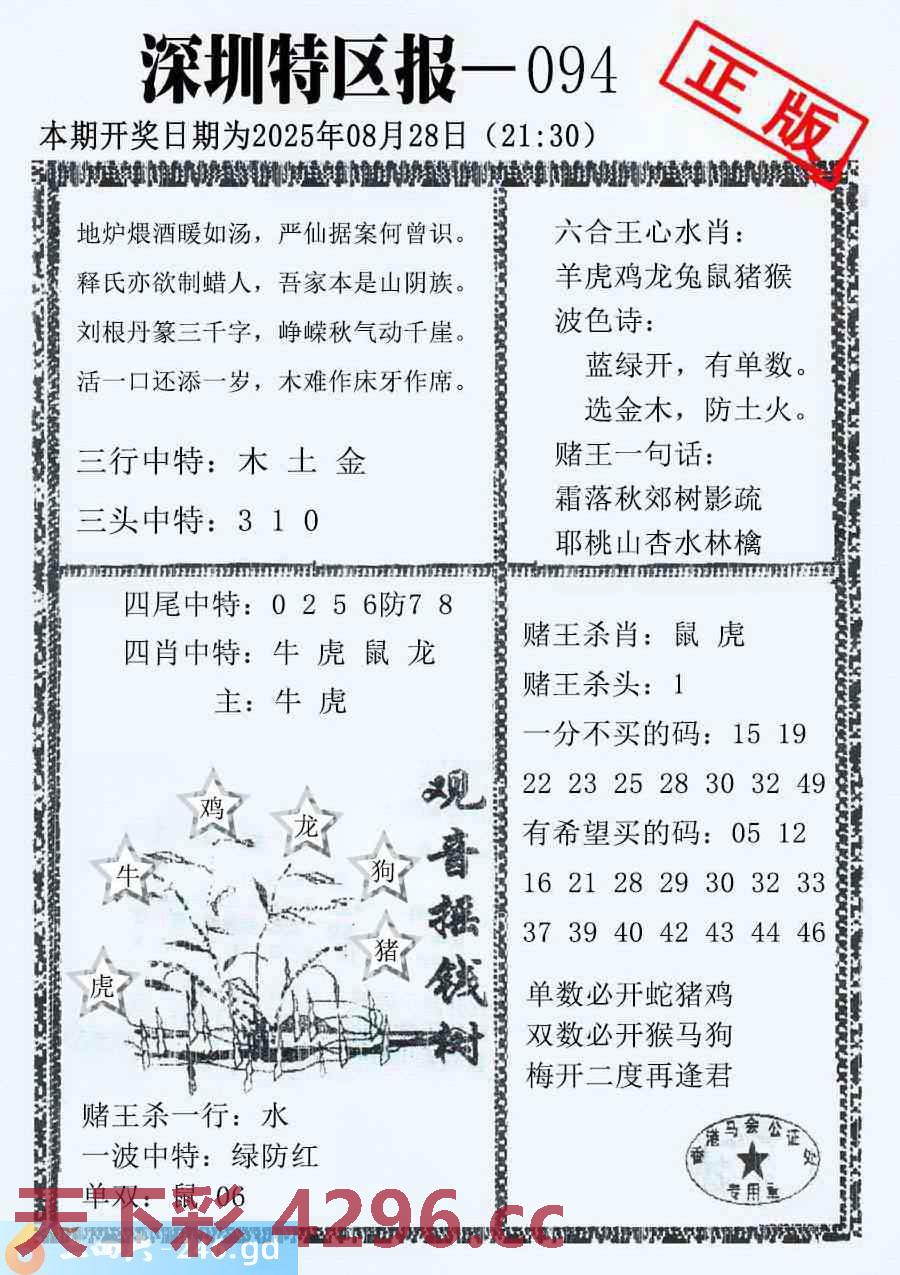 深圳特区报－094
正版
本期开奖日期为2025年08月28日（21:30）
地炉煨酒暖如汤，严仙据案何曾识。
释氏亦欲制蜡人，吾家本是山阴族。
刘根丹篆三千字，峥嵘秋气动千崖。
活一口还添一岁，木难作床牙作席。
三行中特：木 土 金
三头中特：3 1 0
六合王心水肖：
羊虎鸡龙兔鼠猪猴
波色诗：
蓝绿开，有单数。
选金木，防土火。
赌王一句话：
霜落秋郊树影疏
耶桃山杏水林檎
四尾中特：0 2 5 6防7 8
四肖中特：牛 虎 鼠 龙
主：牛 虎
观音摇钱树
鸡
龙
牛
狗
猪
虎
赌王杀一行：水
一波中特：绿防红
单双：鼠 06
赌王杀肖：鼠 虎
赌王杀头：1
一分不买的码：15 19
22 23 25 28 30 32 49
有希望买的码：05 12
16 21 28 29 30 32 33
37 39 40 42 43 44 46
单数必开蛇猪鸡
双数必开猴马狗
梅开二度再逢君
香港马会公证处
专用章
天下彩 4296.cc